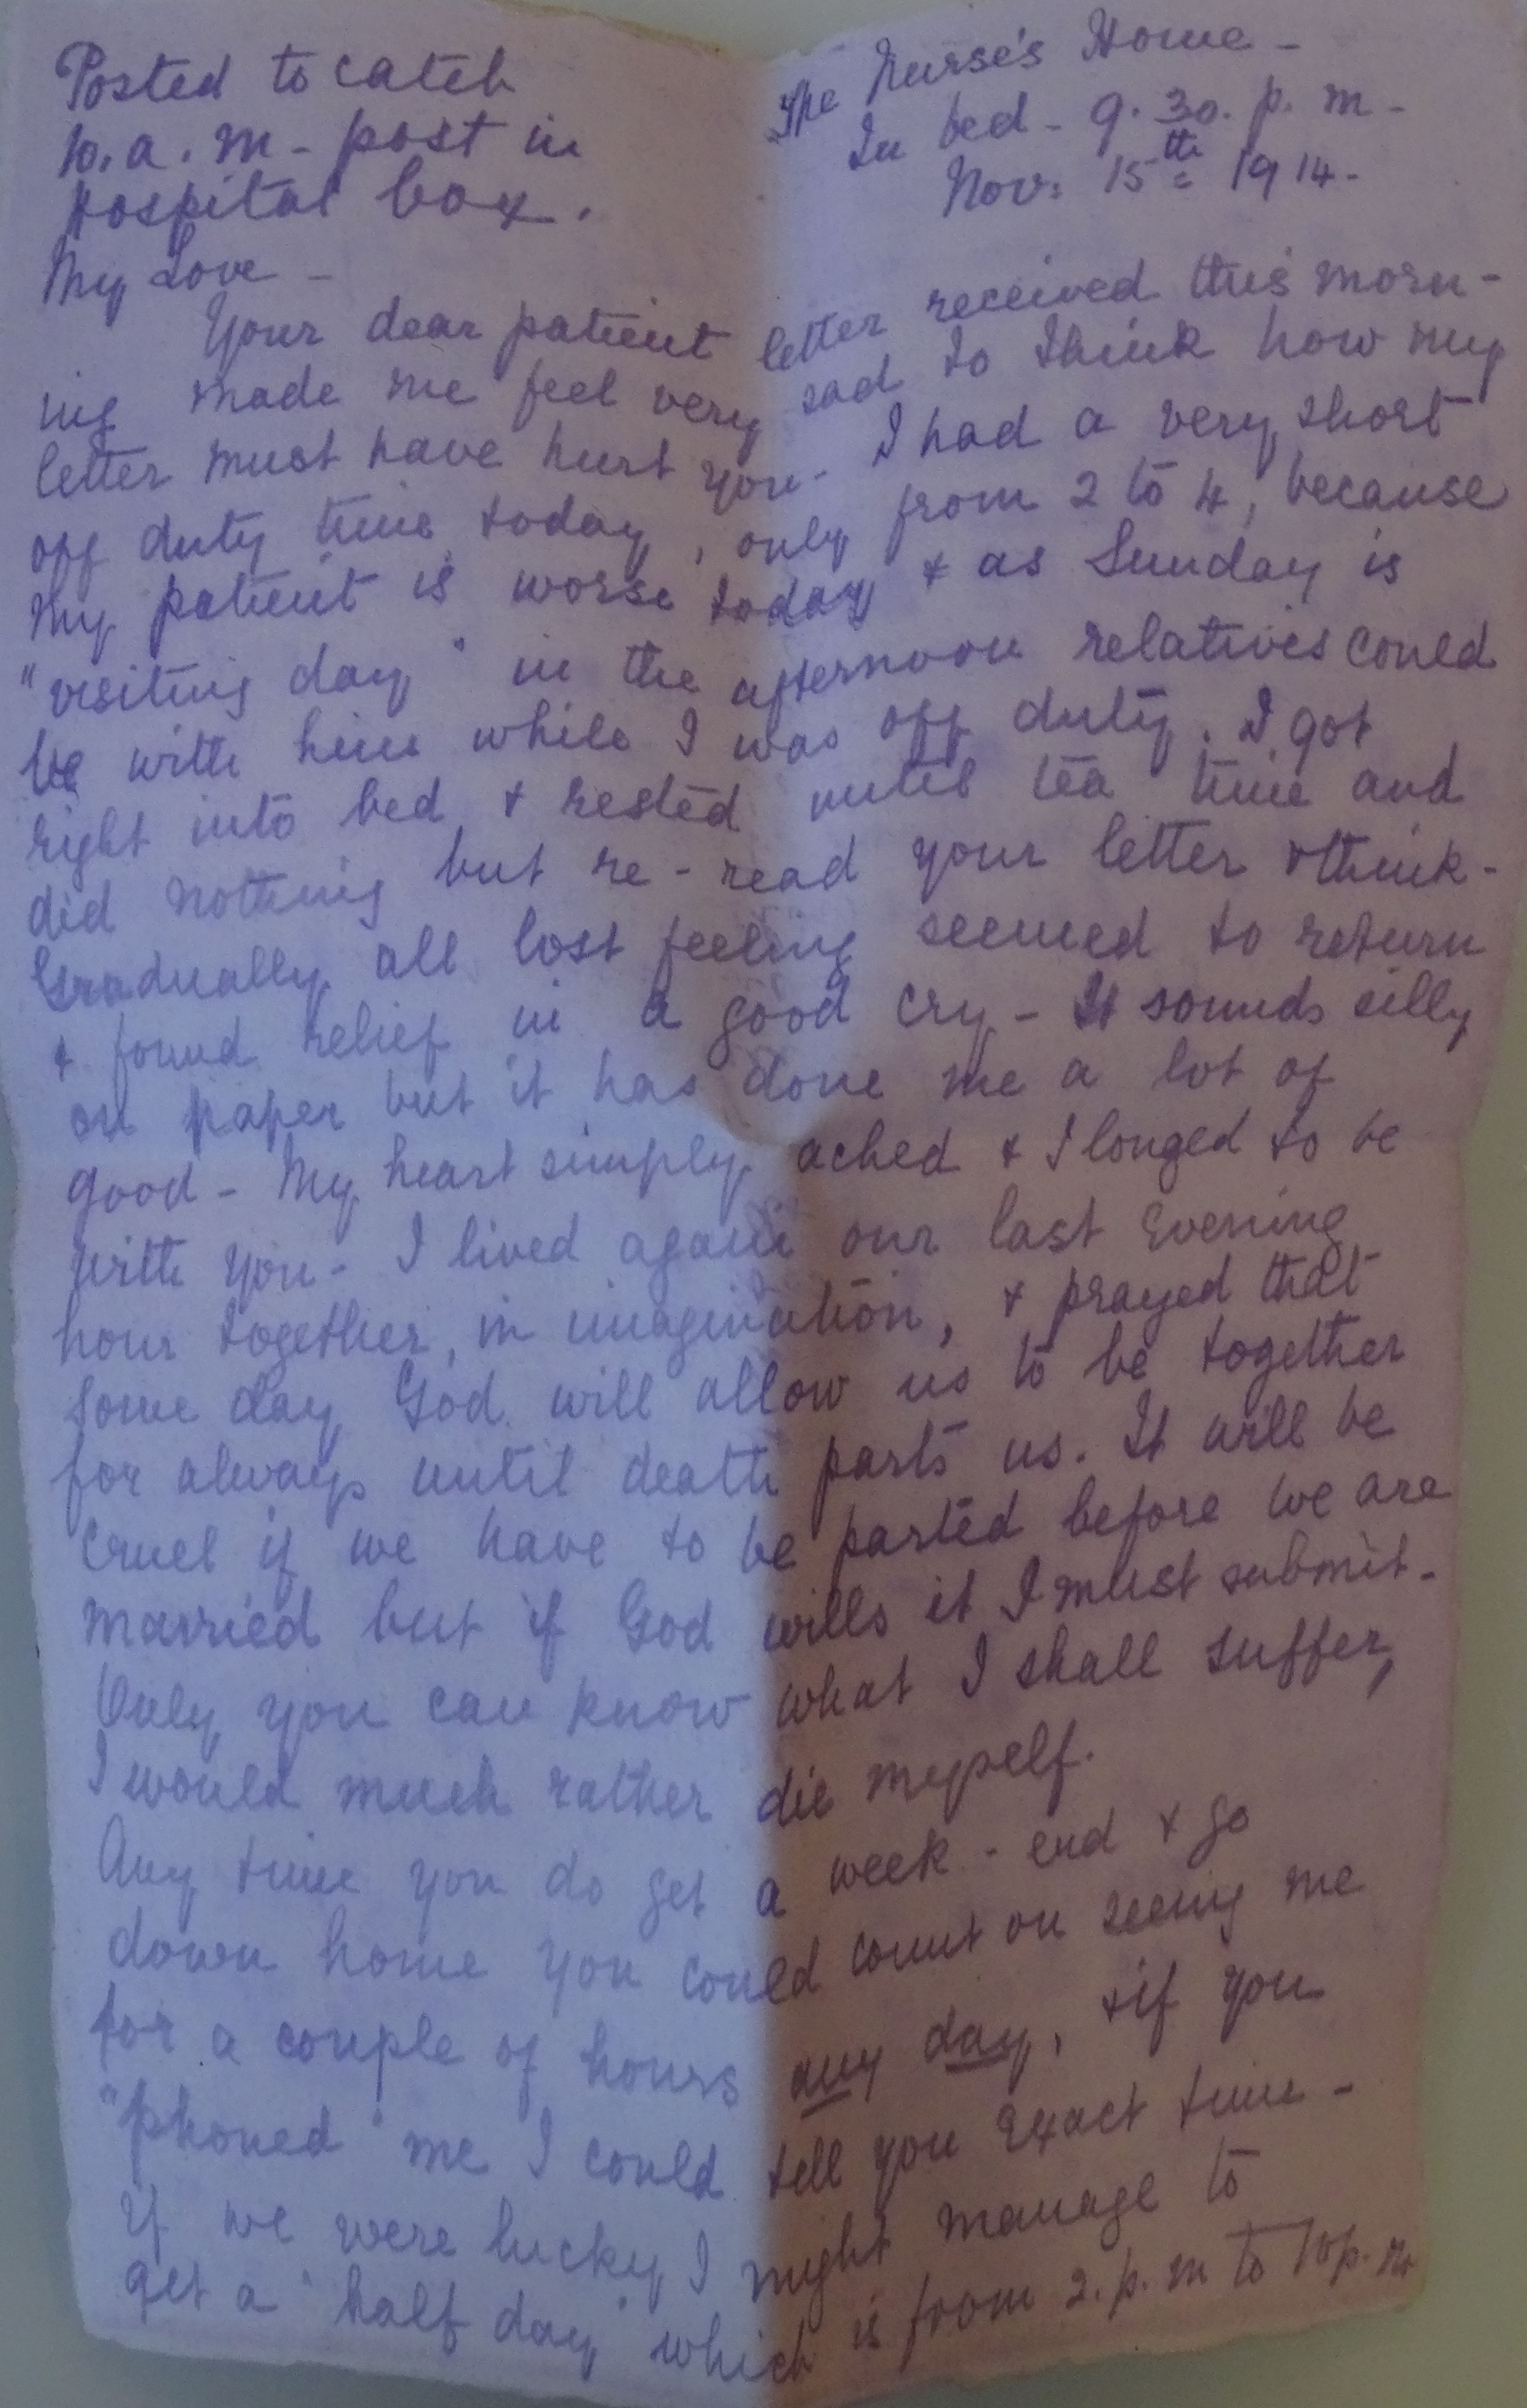 Posted to catch
10. a. m - post in
hospital box.
The Nurse's Home -
In bed - 9. 30. p. m -
Nov: 15th 1914.
My Love -
Your dear patient letter received this morn-
ing made me feel very sad to think how my
letter must have hurt you - I had a very short
off duty time today, only from 2 to 4, because
my patient is worse today & as Sunday is
"visiting day" in the afternoon relatives could
be with him while I was off duty. I got
right into bed & rested until tea time and
did nothing but re-read your letter & think -
Gradually all lost feeling seemed to return
& found relief in a good cry - It sounds silly
on paper but it has done me a lot of
good - My heart simply ached & I longed to be
with you - I lived again our last evening
hour together, in imagination, & prayed that
some day God will allow us to be together
for always until death parts us. It will be
cruel if we have to be parted before we are
married but if God wills it I must submit -
Only you can know what I shall suffer,
I would much rather die myself.
Any time you do get a week-end & go
down home you could count on seeing me
for a couple of hours any day, & if you
"phoned" me I could tell you exact time -
If we were lucky I might manage to
get a "half day" which is from 2. p. m to 10 p. m